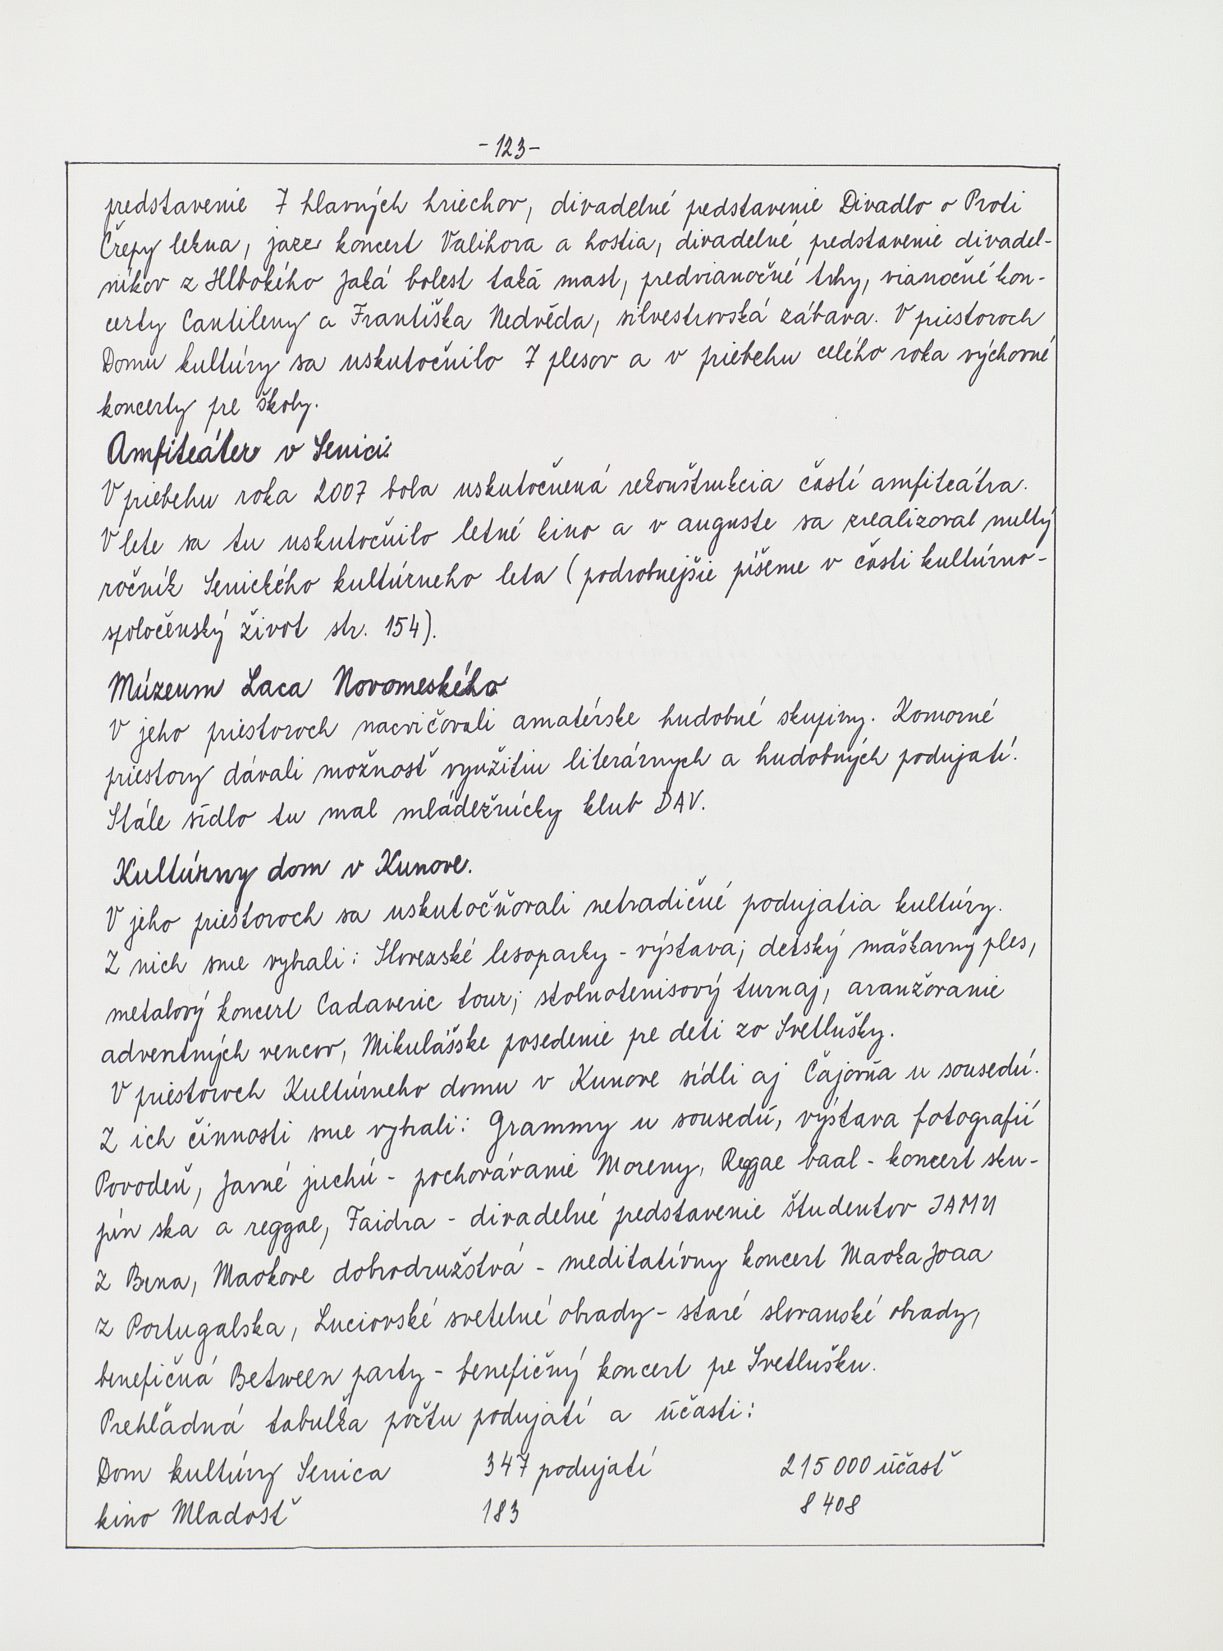 -123-
predstavenie 7 hlavných hriechov, divadelné pedstavenie Divadlo o Proti
Črepy lekna, jazz koncert Valihora a hostia, divadelné predstavenie divadel-
níkov z Hlbokého Jaká bolest taká mast, predvianočné trhy, vianočné kon-
certy Cantileny a Františka Nedvěda, silvestrovská zábava. V priestoroch
Domu kultúry sa uskutočnilo 7 plesov a v priebehu celého roka výchovné
koncerty pre školy.
Amfiteáter v Senici
V priebehu roka 2007 bola uskutočnená rekonštrukcia častí amfiteátra.
V lete sa tu uskutočnilo letné kino a v auguste sa zrealizoval nultý
ročník Senického kultúrneho leta (podrobnejšie píšeme v časti kultúrno-
spoločenský život str. 154).
Múzeum Laca Novomeského
V jeho priestoroch nacvičovali amatérske hudobné skupiny. Komorné
priestory dávali možnosť využitiu literárnych a hudobných podujatí.
Stále sídlo tu mal mládežnícky klub DAV.
Kultúrny dom v Kunove.
V jeho priestoroch sa uskutočňovali netradičné podujatia kultúry.
Z nich sme vybrali: Slovenské lesoparky - výstava; detský maškarný ples,
metalový koncert Cadaveric tour; stolnotenisový turnaj, aranžovanie
adventných vencov, Mikulášske posedenie pre deti zo Svetlušky.
V priestoroch Kultúrneho domu v Kunove sídli aj Čajovňa u sousedú.
Z ich činnosti sme vybrali: Grammy u sousedú, výstava fotografií
Povodeň, Jarné juchú - pochovávanie Moreny, Reggae baal - koncert sku-
pín ska a reggae, Faidra - divadelné predstavenie študentov JAMU
z Brna, Maokove dobrodružstvá - meditatívny koncert Maoka Joaa
z Portugalska, Luciovské svetelné obrady - staré slovanské obrady,
benefičná Between party - benefičný koncert pre Svetlušku.
Prehľadná tabuľka počtu podujatí a účasti:
Dom kultúry Senica 347 podujatí 215 000 účasť
kino Mladosť 183 8 408